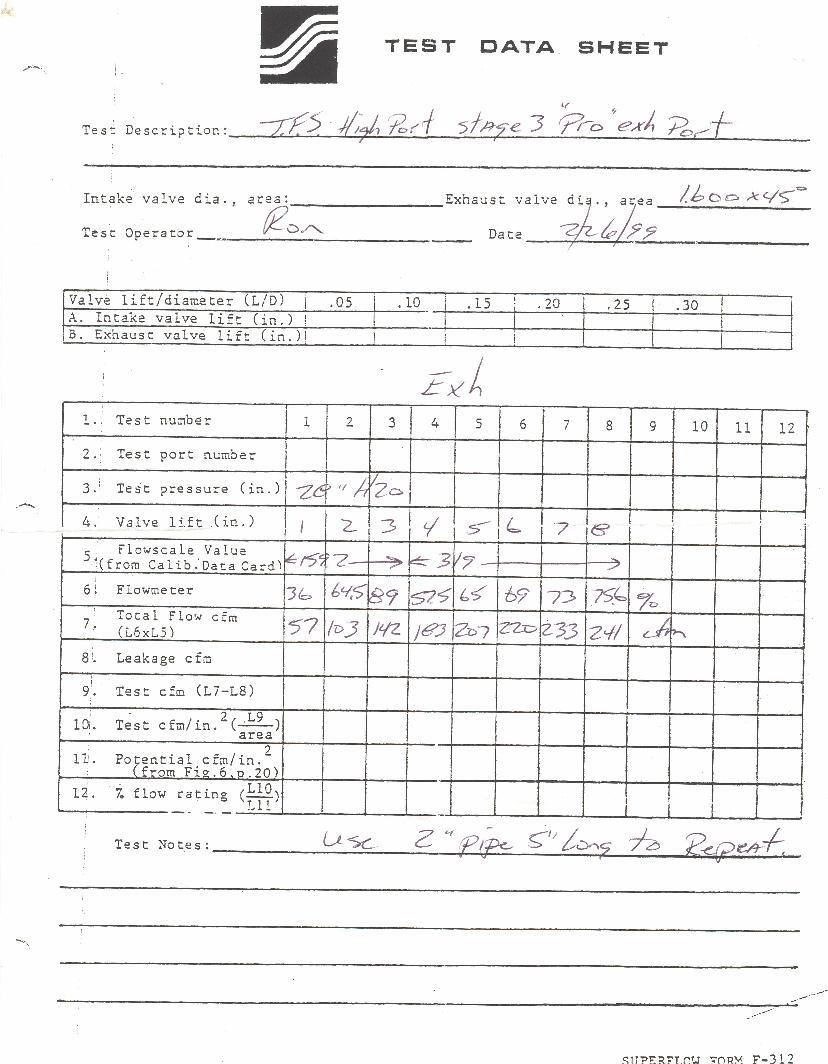 TEST DATA SHEET
Test Description: T.F.S. High Port stage 3 "Pro" exh Port
Intake valve dia., area: Exhaust valve dia., area 1.600 x 45°
Test Operator Ron Date 2/26/99
Valve lift/diameter (L/D) .05 .10 .15 .20 .25 .30
A. Intake valve lift (in.)
B. Exhaust valve lift (in.)
Exh
1. Test number 1 2 3 4 5 6 7 8 9 10 11 12
2. Test port number
3. Test pressure (in.) 28" H20
4. Valve lift (in.) 1 2 3 4 5 6 7 8
5. Flowscale Value
(from Calib.Data Card) ←159 2 → ← 319 →
6. Flowmeter 36 64.5 89 57.5 65 69 73 75.6 %
7. Total Flow cfm
(L6xL5) 57 103 142 183 207 220 233 241 cfm
8. Leakage cfm
9. Test cfm (L7-L8)
10. Test cfm/in.2 (L9
area)
11. Potential cfm/in.2
(from Fig.6,p.20)
12. % flow rating (L10
L11)
Test Notes: Use 2" pipe 5" Long to Repeat.
SUPERFLOW FORM F-312